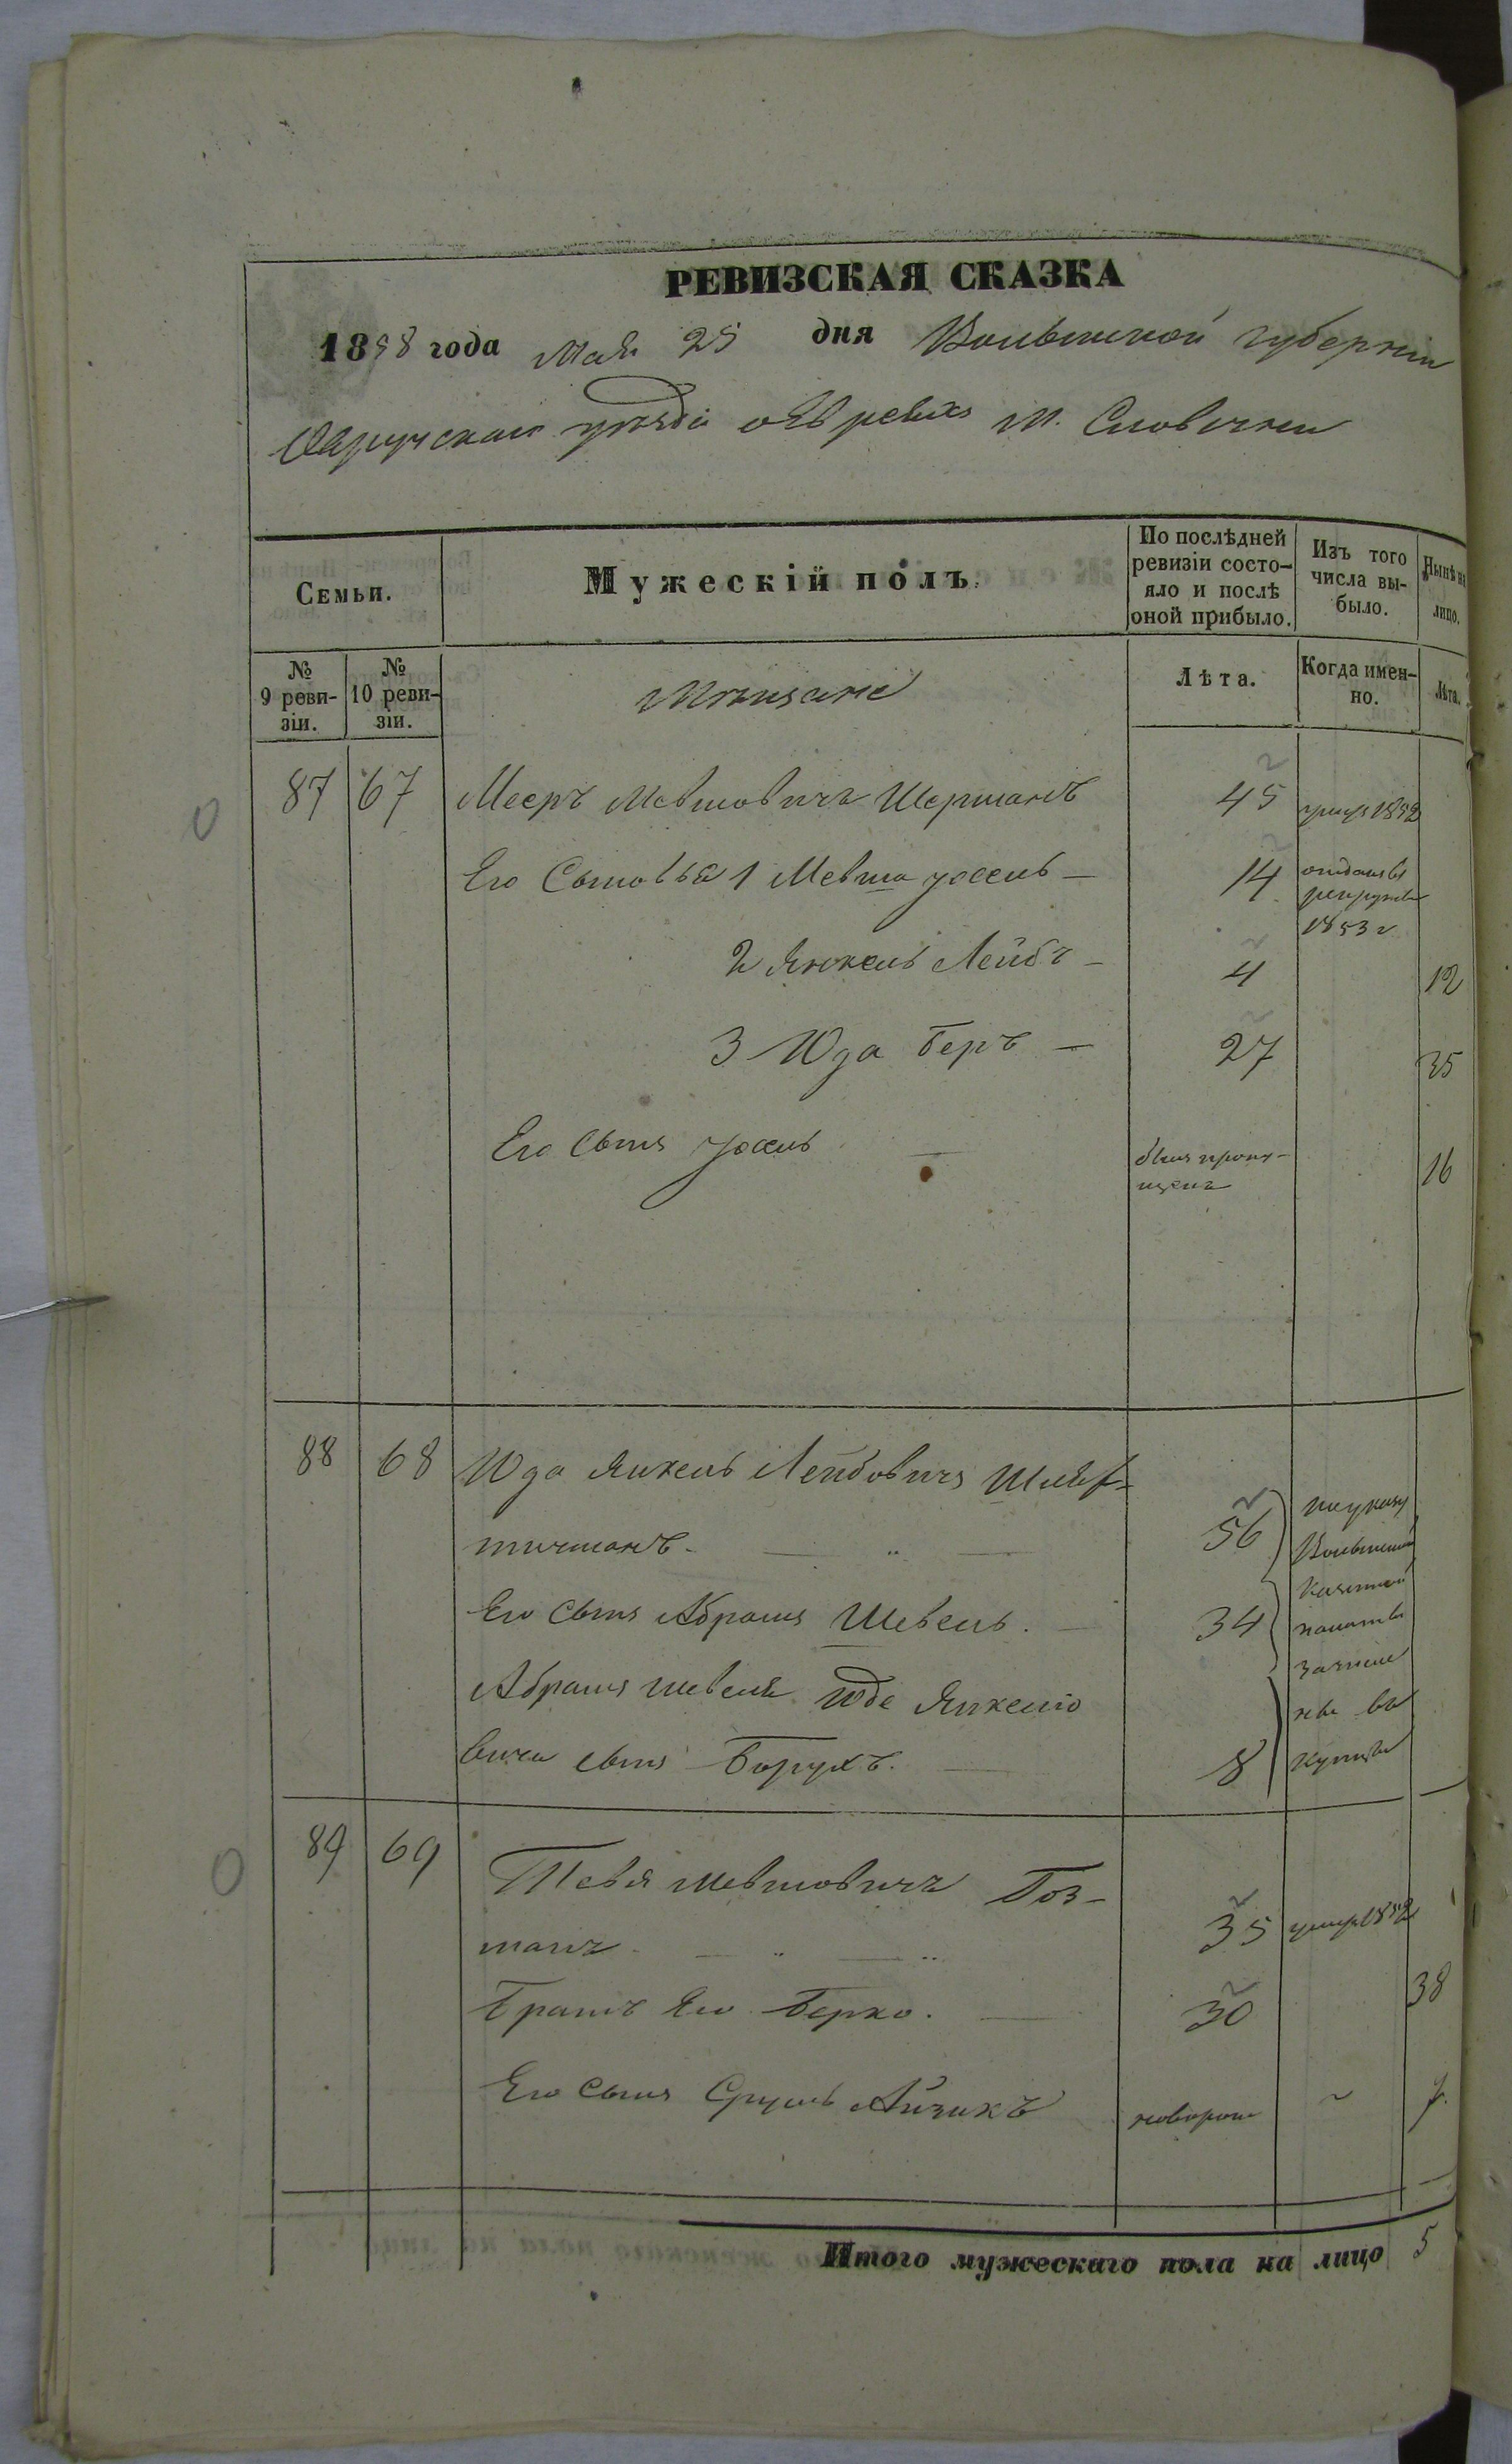 РЕВИЗСКАЯ СКАЗКА
1858 года Мая 25 дня Волынской губернии
Овручскаго уѣзда о Евреяхъ М. Словечни
Семьи.
Мужескій полъ.
По послѣдней ревизіи состо-
яло и послѣ
оной прибыло.
Изъ того
числа вы-
было.
Нынѣ на
лицо.
№
9 реви-
зіи.
№
10 реви-
зіи.
Мѣщане
Лѣта.
Когда имен-
но.
Лѣта.
87 67 Мееръ Мевшовичъ Шерманъ 45 умеръ 1852
Его Сыновья 1 Мевша Іосель — 14 отданъ въ
рекруты
1853 г
2 Янкель Лейбъ — 4 12
3 Юда Беръ — 27 35
Его Сынъ Іосель — былъ пропу-
щенъ 16
88 68 Юда Янкель Лейбовичъ
56 по указу
Волынской
Его Сынъ Абрамъ Шевель. 34 Казенной
палаты
Абрама Шевеля Юде Янкелю
зачисле
ны въ
вича сынъ Борухъ. 8 купцы
89 69 Тевя Мевшовичъ Гоз-
манъ 35 умеръ 1852
Братъ Его Берко. 30 38
Его Сынъ Сруль Айзикъ новорож 7.
Итого мужескаго пола на лицо 5